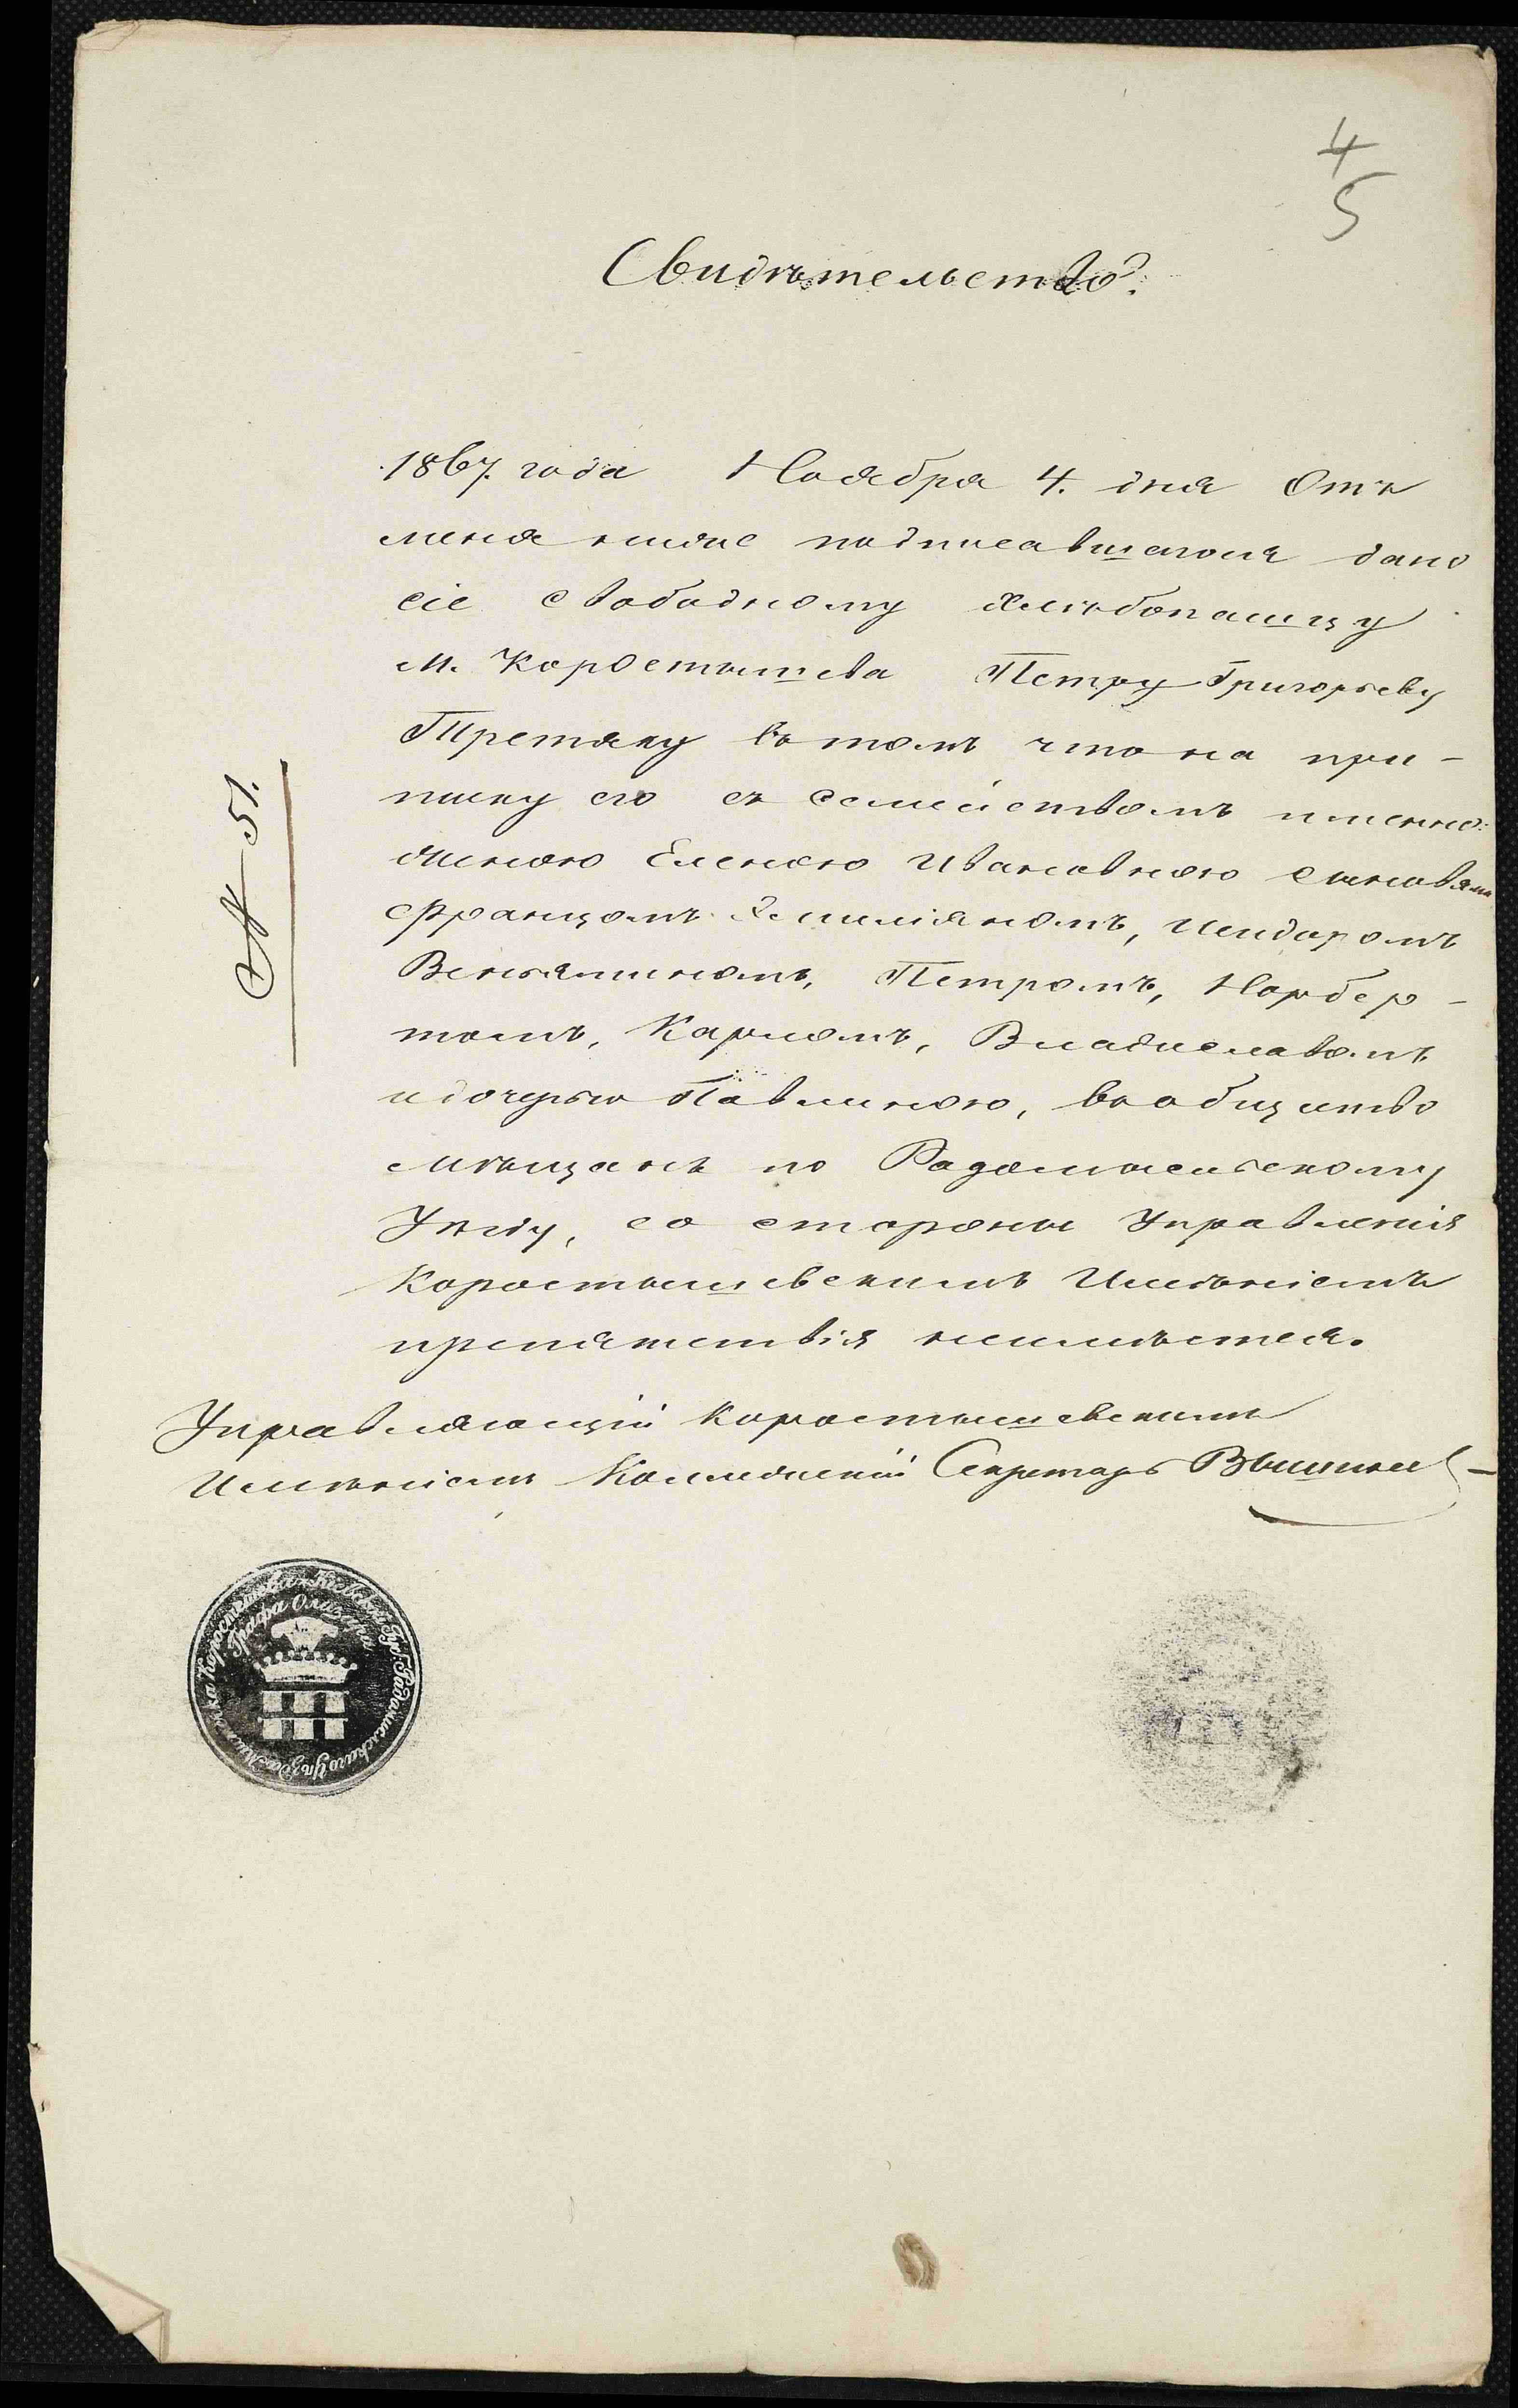 4
5
Свидѣтельство.
1867. года Ноября 4. дня Отъ
меня ниже подписавшагося дано
сіе свободному хлѣбопашцу
м. Коростышева Петру Григорьеву
Третяку въ томъ что на при-
писку его съ семействомъ именно:
женою Еленою Ивановною сыновями
Францомъ Емиліяномъ, Исидоромъ
Веньяминомъ, Петромъ, Норбер-
томъ, Карломъ, Владиславомъ
и дочерью Павлиною, въ общество
мѣщанъ по Радомысльскому
Уѣзду, со стороны Управленія
Коростышевскимъ Имѣніемъ
препятствія неимѣется.
№ 51.
Управляющій Коростышевскимъ
Имѣніемъ Коллежскій Секретарь
Графа Олизара